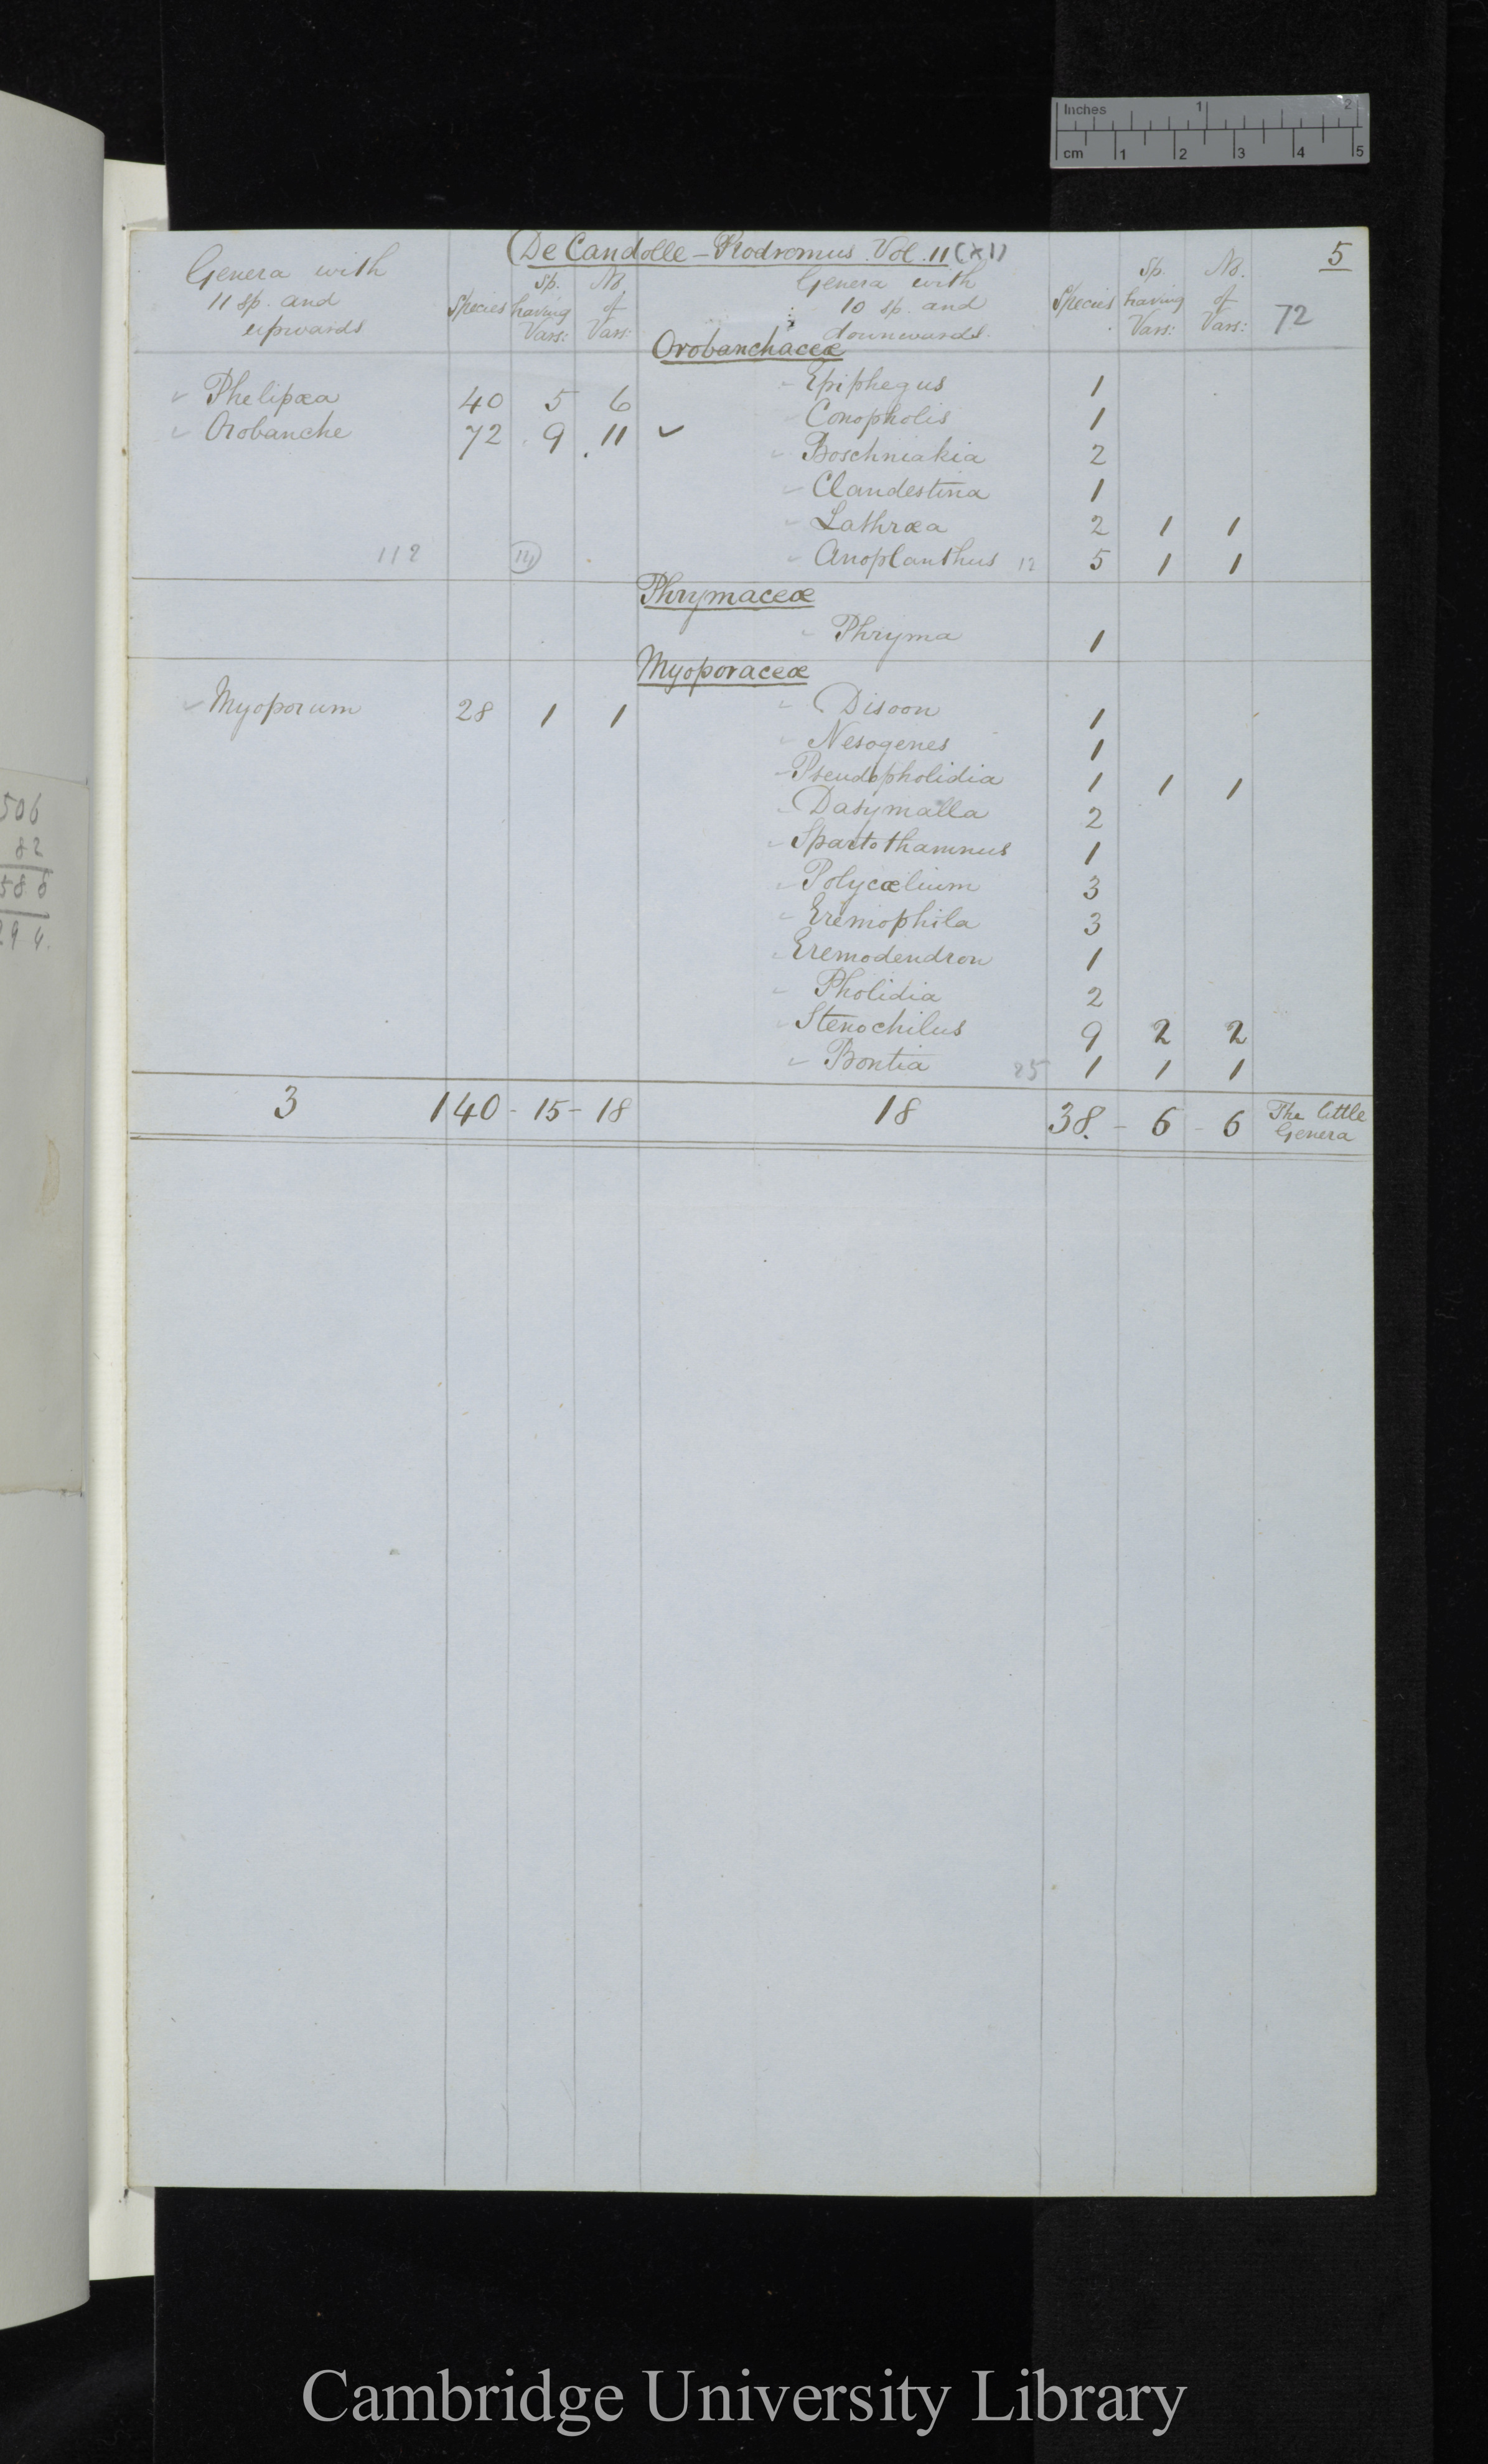 Inches 1 2
cm 1 2 3 4 5
(De Candolle – Prodromus. Vol. 11 (XI) 5
Genera with 11 sp. and upwards Species Sp. having Vars: No. of Vars: Genera with 10 sp. and downwards. Species Sp. having Vars: No. of Vars: 72
Orobanchaceæ
Phelipæa 40 5 6 Epiphegus 1
Orobanche 72 9 11 ✓ Conopholis 1
Boschniakia 2
Clandestina 1
Lathræa 2 1 1
112 14 Anoplanthus 12 5 1 1
Phrymaceæ
Phryma 1
Myoporaceæ
Myoporum 28 1 1 Disoon 1
Nesogenes 1
Pseudopholidia 1 1 1
Dasymalla 2
Spartothamnus 1
Polycœlium 3
Eremophila 3
Eremodendron 1
Pholidia 2
Stenochilus 9 2 2
Bontia 25 1 1 1
3 140 - 15 - 18 18 38. - 6 - 6 The little Genera
506
82
588
294.
Cambridge University Library